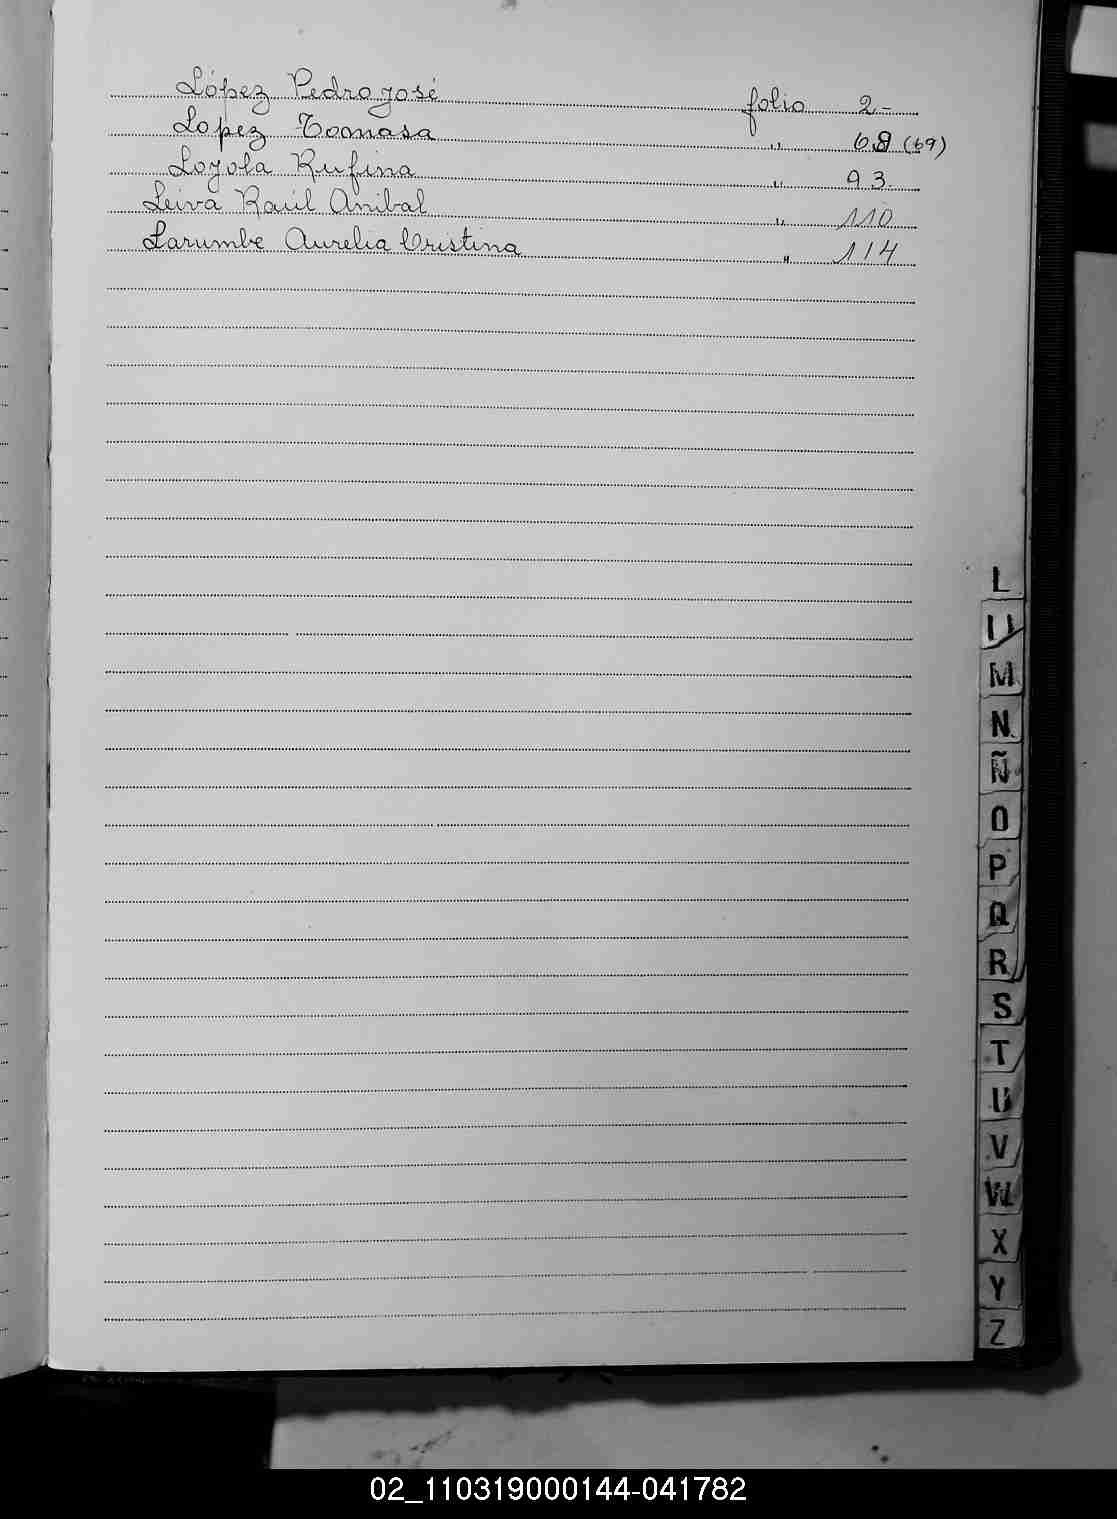 López Pedro José folio 2.-
Lopez Tomasa " 68 (69)
Loyola Rufina " 93.
Leiva Raúl Anibal " 110
Larumbe Aurelia Cristina " 114
L
M
N
Ñ
O
P
Q
R
S
T
U
V
W
X
Y
Z
02_110319000144-041782